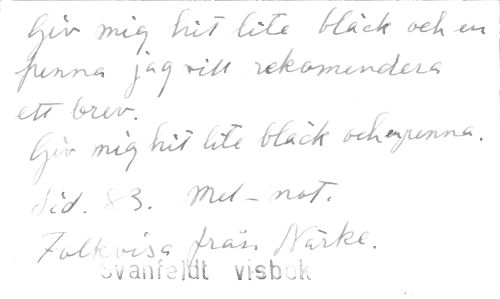 Giv mig hit lite bläck och en
penna jag vill rekomendera
ett brev.
Giv mig hit lite bläck och en penna.
Sid. 83. Mel-not.
Folkvisa från Närke.
Svanfeldt visbok